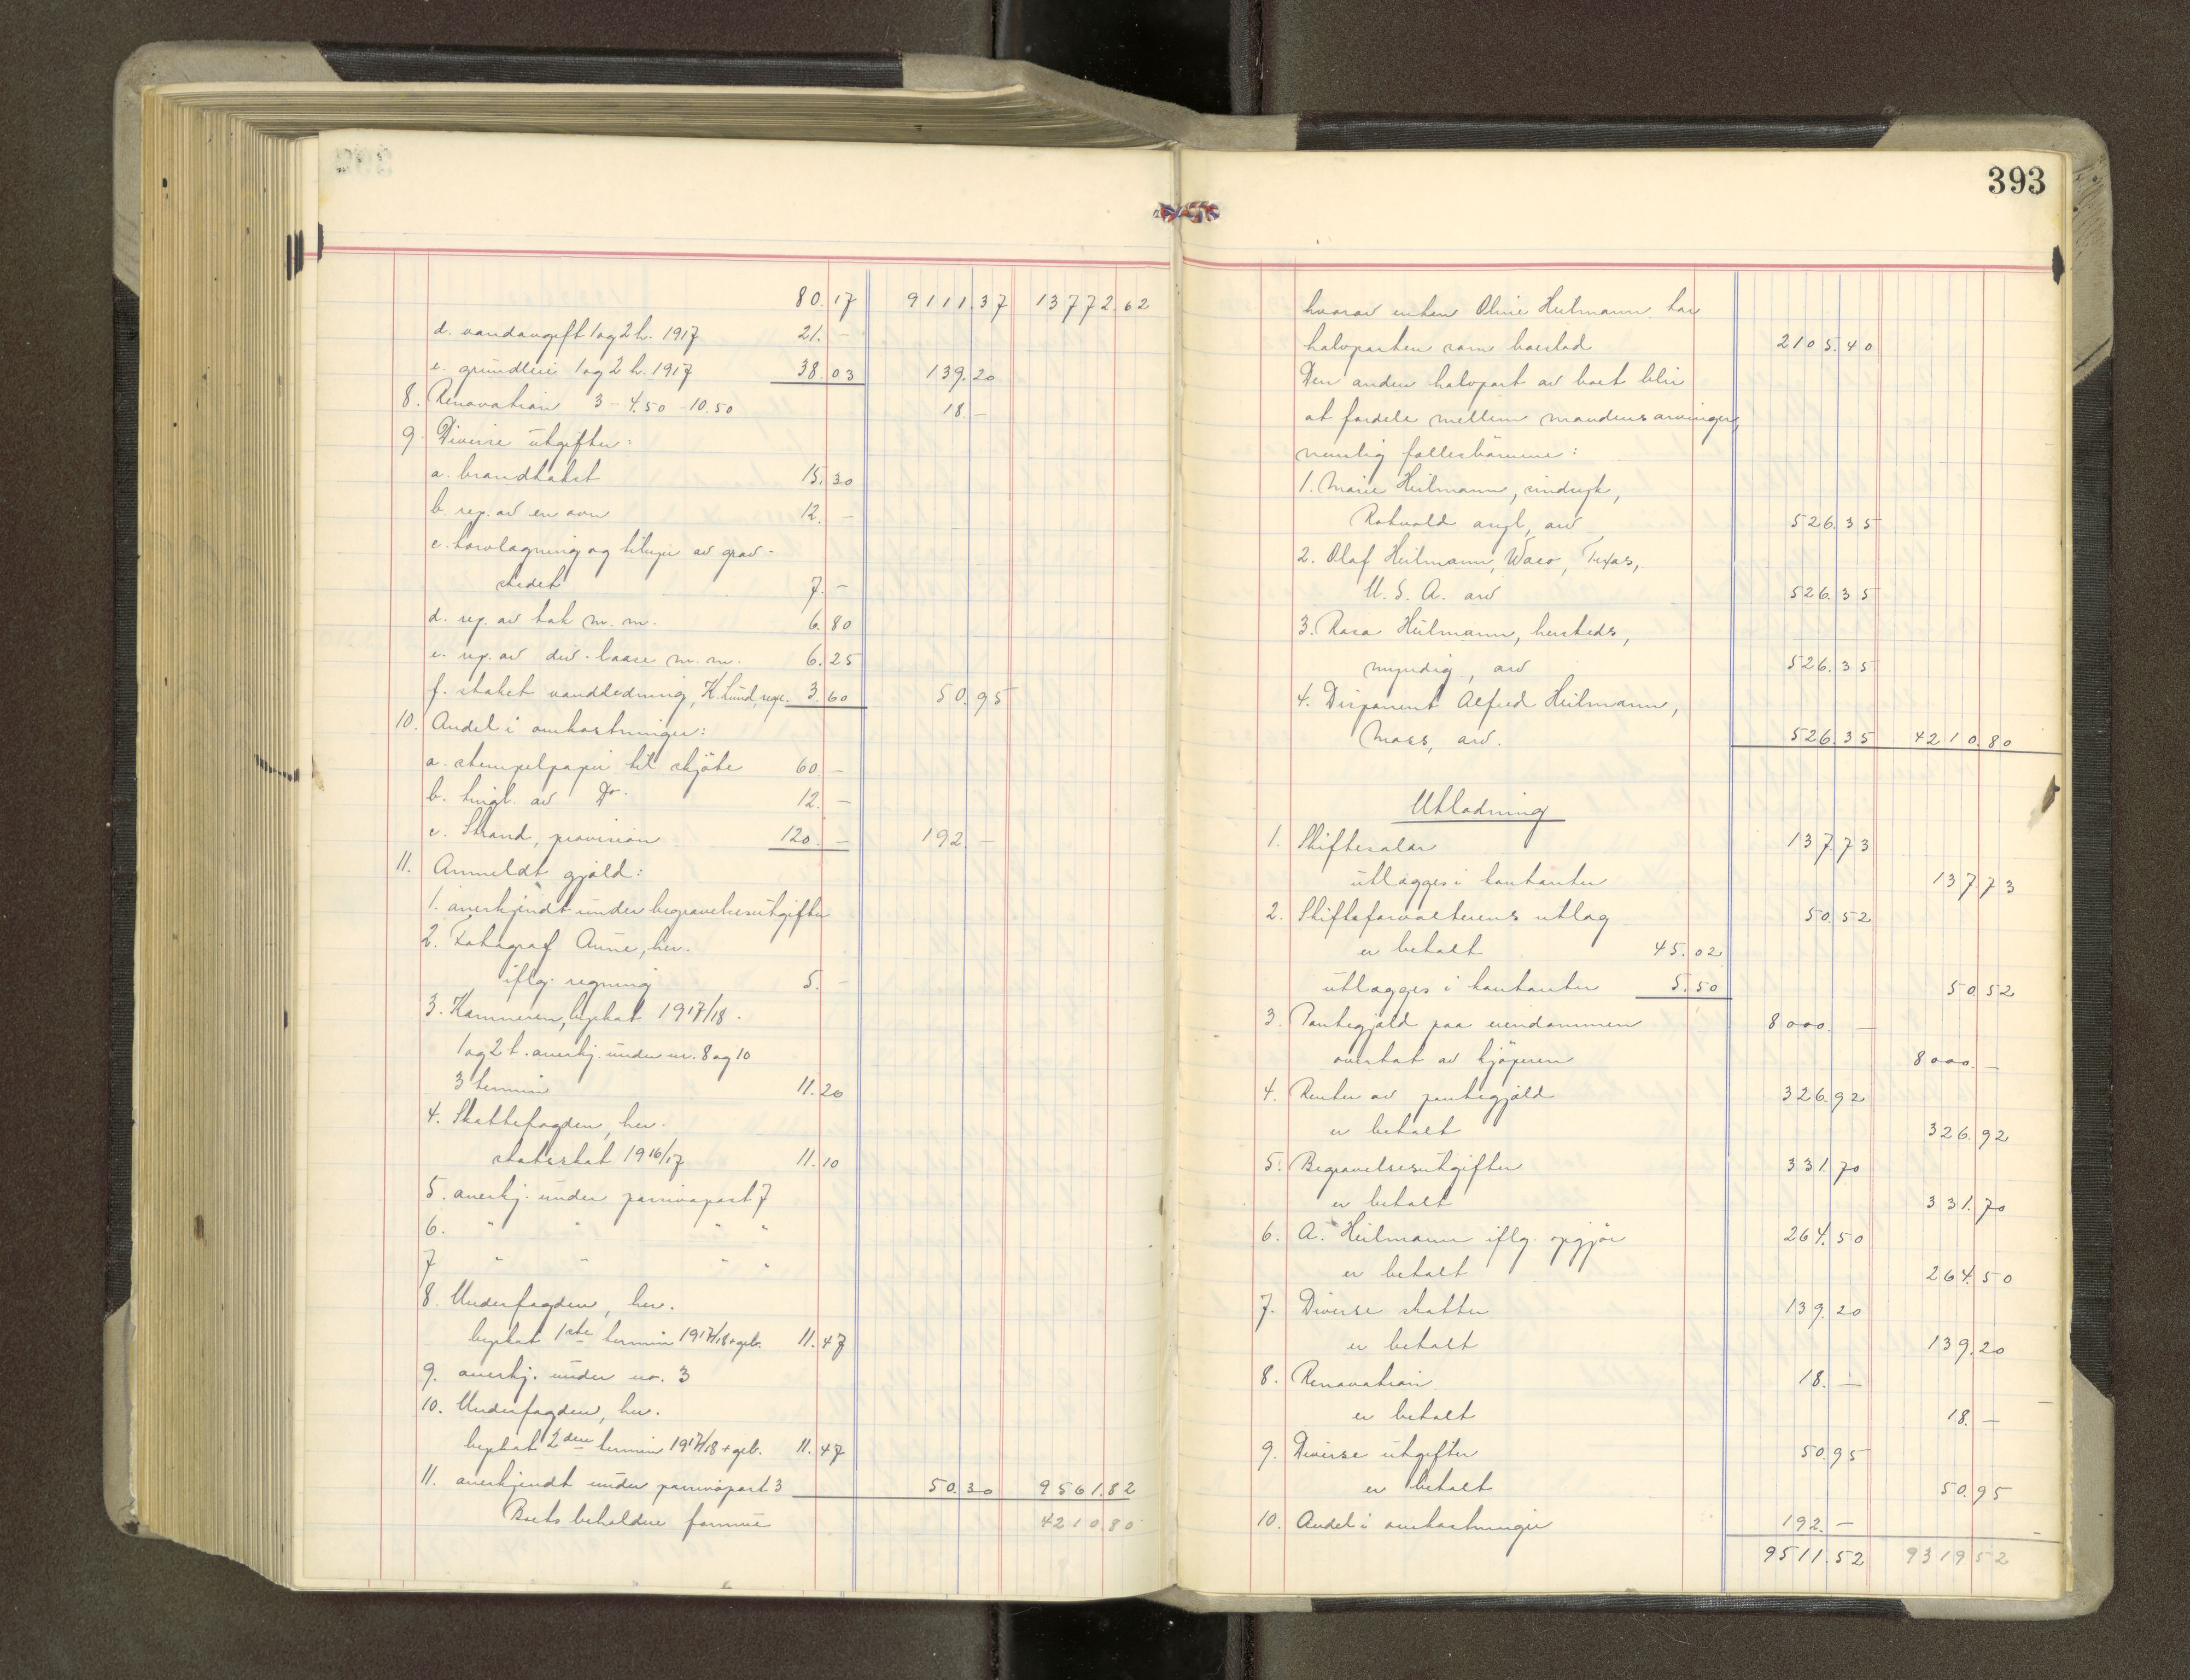 80.17 9111.37 13772.62
d. vandavgift 1 og 2 h. 1917 21. –
e. grundleie 1 og 2 h. 1917 38.03 139.20
8. Renovation 3 – 4.50 – 10.50 18 –
9. Diverse utgifter:
a. brandtakst 15.30
b. rep. av en ovn 12. –
c. torvlægning og tilsyn av grav-
stedet 7. –
d. rep. av tak m. m. 6.80
e. rep. av div. laase m. m. 6.25
f. staket vandledning, K. Lund, regn. 3.60 50.95
10. Andel i omkostninger:
a. stempelpapir til skjöte 60. –
b. tingl. av Do. 12. –
c. Strand, provision 120. – 192. –
11. Anmeldt gjæld:
1. anerkjendt under begravelsesutgifter
2. Fotograf Aune, her.
iflg. regning 5. –
3. Kæmneren, byskat 1917/18.
1 og 2 t. anerkj. under nr. 8 og 10
3 termin 11.20
4. Skattefogden, her.
statsskat 1916/17 11.10
5. anerkj. under passivapost 7
6. " " " "
7 " " " "
8. Underfogden, her.
byskat 1ste termin 1917/18 + geb. 11.47
9. anerkj. under no. 3
10. Underfogden, her.
byskat 2den termin 1917/18 + geb. 11.47
11. anerkjendt under passivapost 3 50.30 9561.82
Boets beholdne formue 4210.80
393
hvorav enken Oline Heilmann har
halvparten som boeslod 2105.40
Den anden halvpart av boet blir
at fordele mellem mandens arvinger,
nemlig fællesbarnene:
1. Marie Heilmann, sindssyk,
Rotvold asyl, arv 526.35
2. Olaf Heilmann, Waco, Texas,
U. S. A. arv 526.35
3. Rosa Heilmann, hersteds,
myndig, arv 526.35
4. Disponent Alfred Heilmann,
Moss, arv. 526.35 4210.80
Utlodning
1. Skiftesalær 137.73
utlægges i kontanter 137.73
2. Skifteforvalterens utlæg 50.52
er betalt 45.02
utlægges i kontanter 5.50 50.52
3. Pantegjæld paa eiendommen 8000. –
overtat av kjöperen 8000. –
4. Renter av pantegjæld 326.92
er betalt 326.92
5. Begravelsesutgifter 331.70
er betalt 331.70
6. A. Heilmann iflg. opgjör 264.50
er betalt 264.50
7. Diverse skatter 139.20
er betalt 139.20
8. Renovation 18. –
er betalt 18. –
9. Diverse utgifter 50.95
er betalt 50.95
10. Andel i omkostninger 192. –
9511.52 9319.52